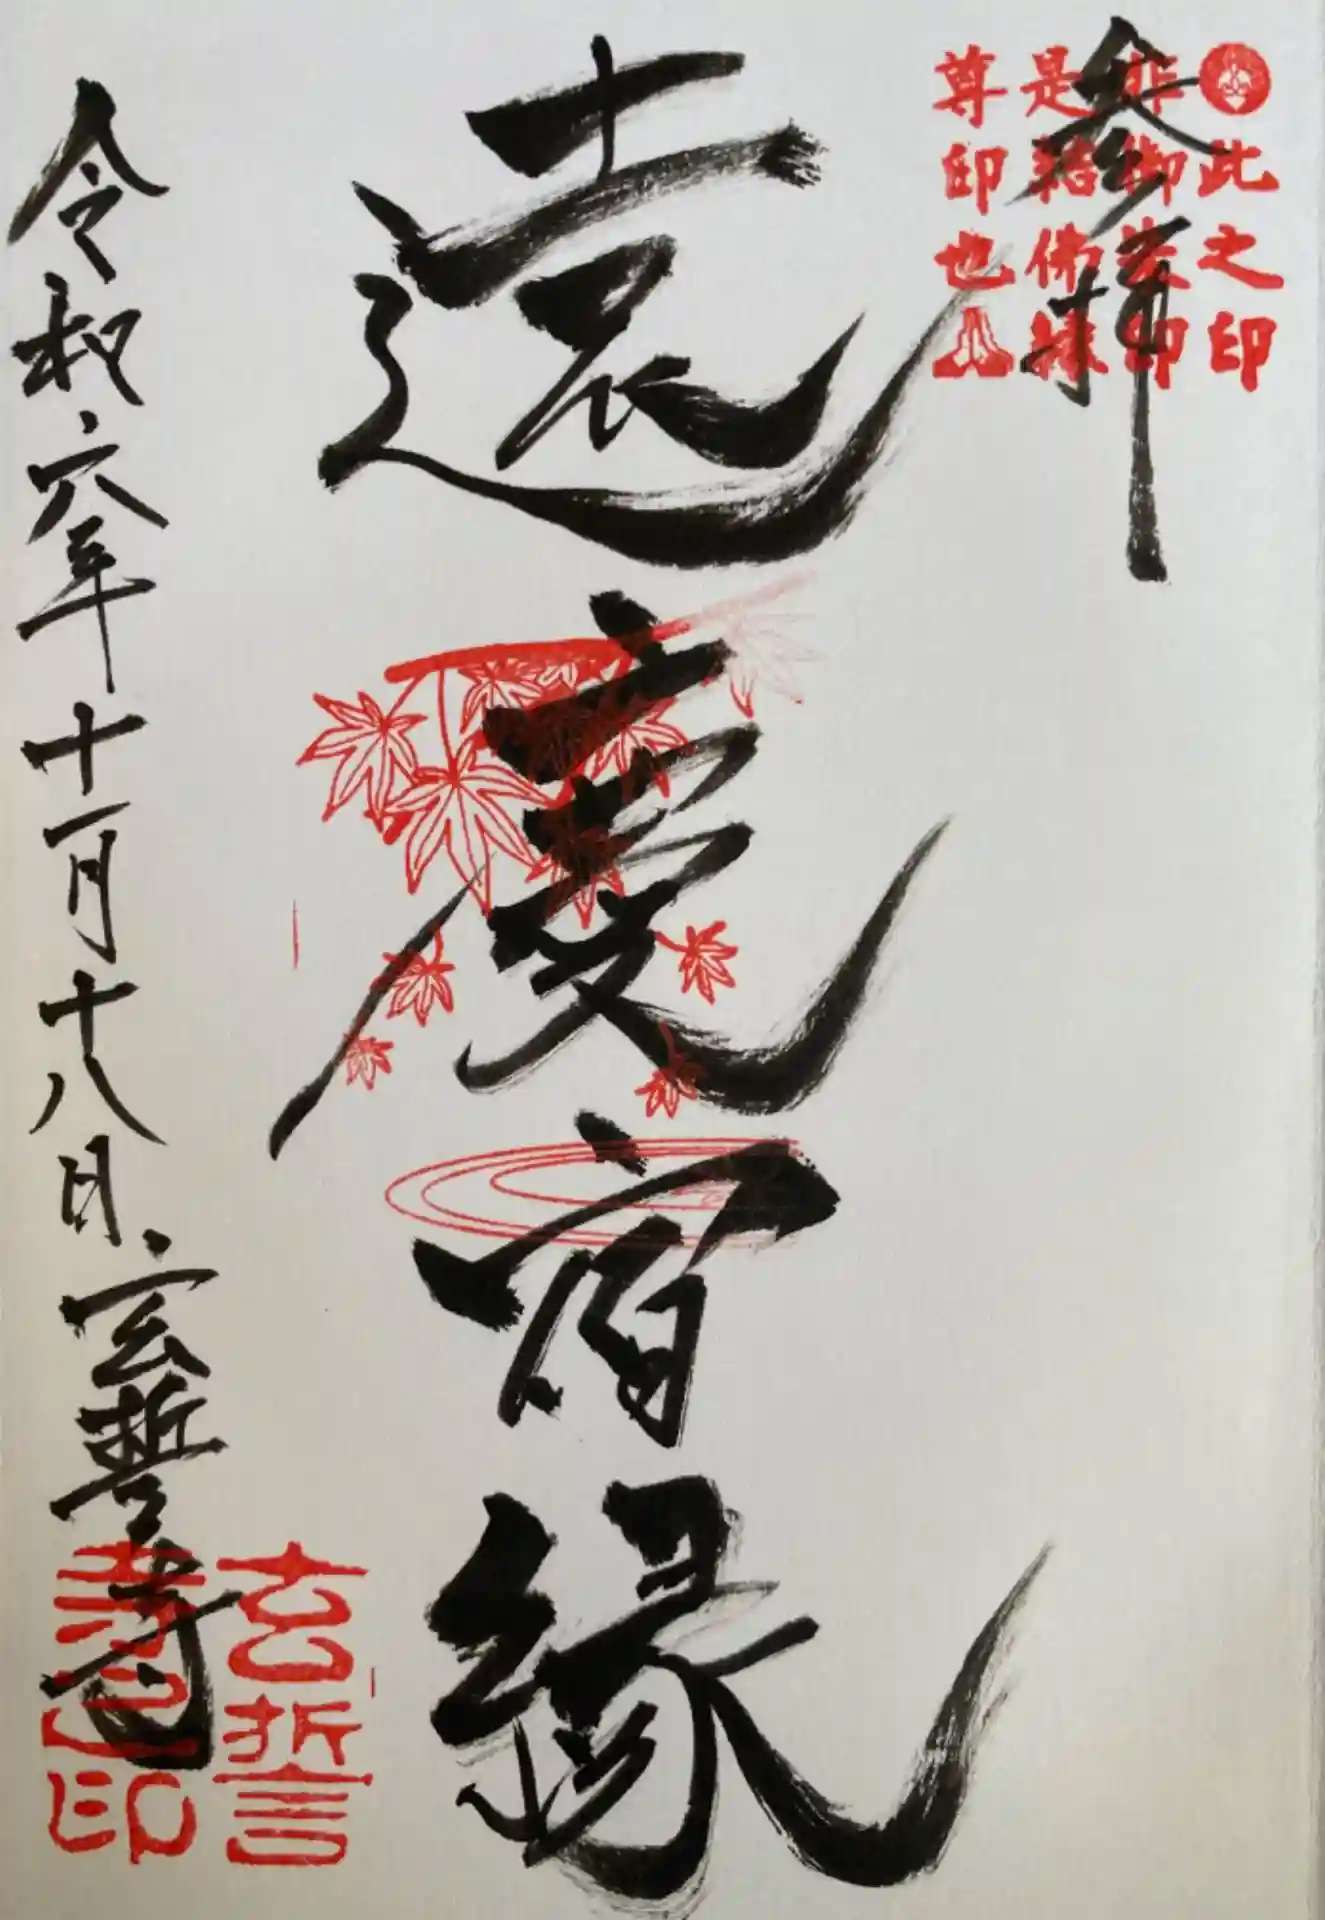 此之印
非御朱印
是結佛縁
尊印也
参拝
遠慶宿縁
令和六年十一月十八日
玄誓寺
玄誓
寺之印